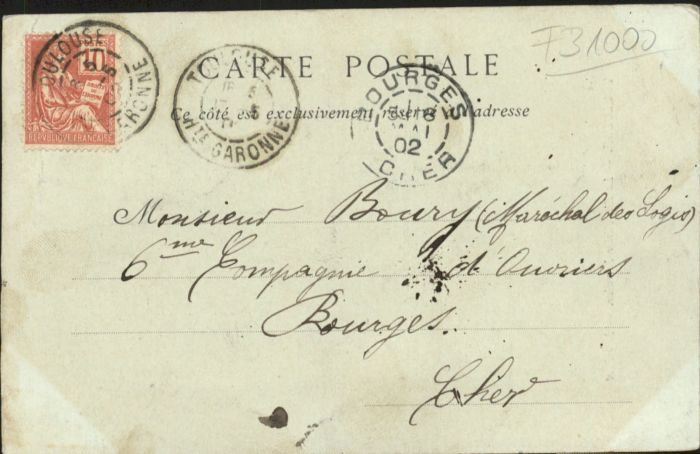 F31000
CARTE POSTALE
Ce côté est exclusivement réservé à l'adresse
POSTES
10
RÉPUBLIQUE FRANÇAISE
TOULOUSE
GARONNE
TOULOUSE
HTE GARONNE
BOURGES
MAI
02
CHER
Monsieur Boury (Maréchal des Logis)
6me Compagnie d'Ouvriers
Bourges.
Cher